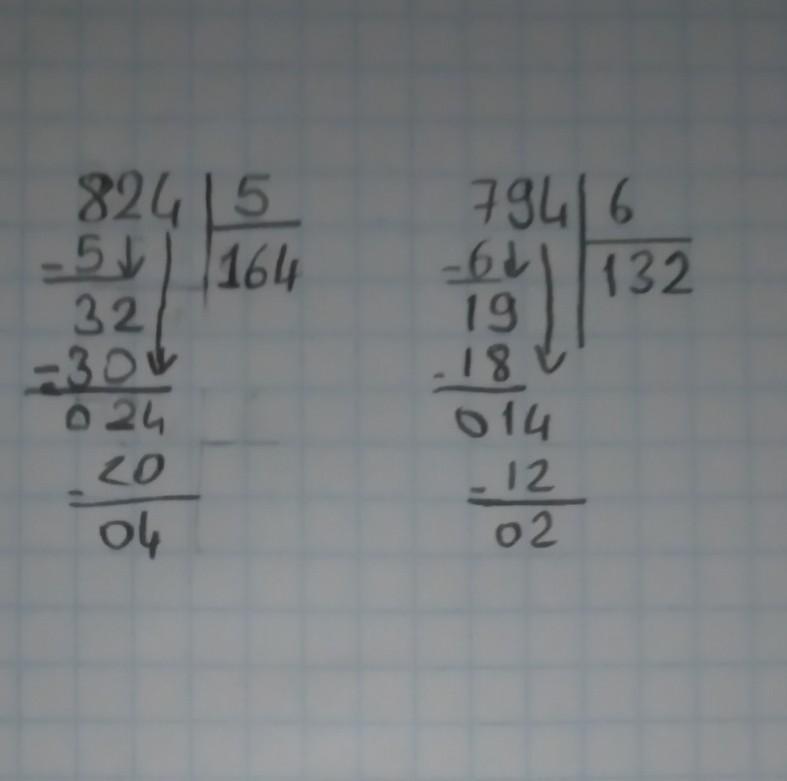 824 | 5
-5↓ 164
32
-30↓
024
-20
04
794 | 6
-6↓ 132
19
-18↓
014
-12
02